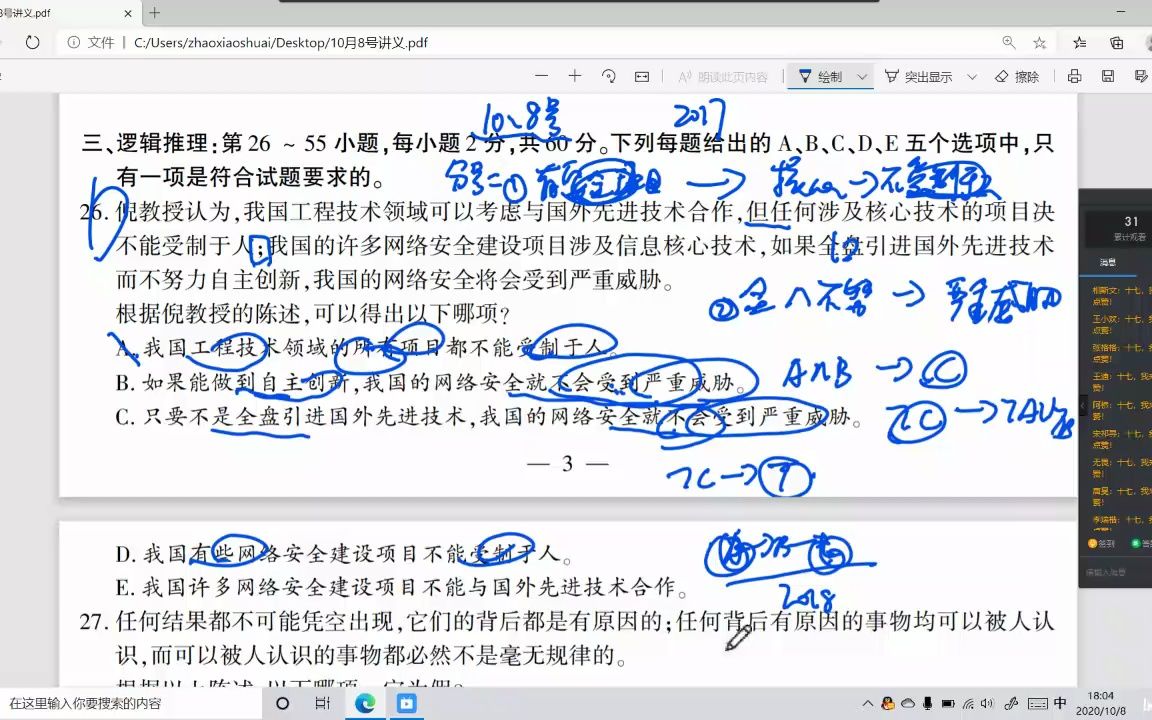 8号讲义.pdf
文件 | C:/Users/zhaoxiaoshuai/Desktop/10月8号讲义.pdf
朗读此页内容 绘制 突出显示 擦除
10、8号 2017
三、逻辑推理:第 26 ~ 55 小题,每小题 2 分,共 60 分。下列每题给出的 A、B、C、D、E 五个选项中,只
有一项是符合试题要求的。
26. 倪教授认为,我国工程技术领域可以考虑与国外先进技术合作,但任何涉及核心技术的项目决
不能受制于人;我国的许多网络安全建设项目涉及信息核心技术,如果全盘引进国外先进技术
而不努力自主创新,我国的网络安全将会受到严重威胁。
② 全∧不努 → 严重威胁
根据倪教授的陈述,可以得出以下哪项?
A. 我国工程技术领域的所有项目都不能受制于人。
B. 如果能做到自主创新,我国的网络安全就不会受到严重威胁。
A∧B → C
C. 只要不是全盘引进国外先进技术,我国的网络安全就不会受到严重威胁。
¬C → ¬A∪¬B
— 3 —
¬C → ?
D. 我国有些网络安全建设项目不能受制于人。
E. 我国许多网络安全建设项目不能与国外先进技术合作。
2018
27. 任何结果都不可能凭空出现,它们的背后都是有原因的;任何背后有原因的事物均可以被人认
识,而可以被人认识的事物都必然不是毫无规律的。
31
累计观看
消息
点赞!
王小欢: 十七,
点赞!
点赞!
王迪: 十七,
点赞!
点赞!
点赞!
点赞!
签到
请输入消息
在这里输入你要搜索的内容
中
18:04
2020/10/8